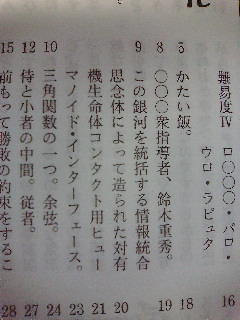 難易度Ⅳ ロ〇〇〇・パロ・
ウロ・ラピュタ
5 かたい飯。
8 〇〇〇衆指導者、鈴木重秀。
9 この銀河を統括する情報統合
思念体によって造られた対有
機生命体コンタクト用ヒュー
マノイド・インターフェース。
10 三角関数の一つ。余弦。
12 侍と小者の中間。従者。
15 前もって勝敗の約束をするこ
16
18
19
20
21
23
24
27
28